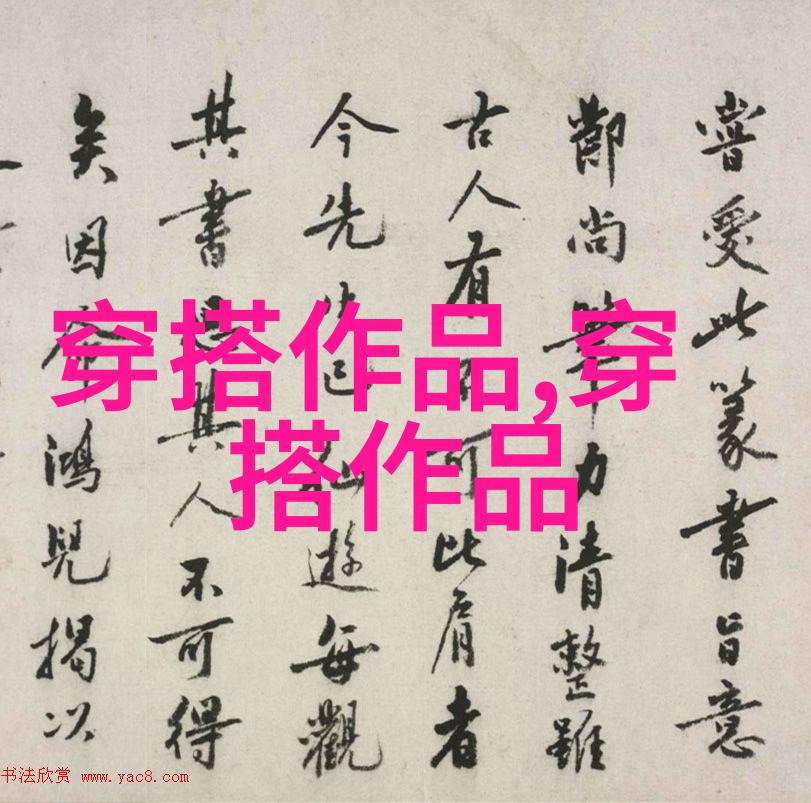 嘗愛此篆書旨意
節尚筆力清整雖
古人有不可比肩者
今先生已仙遊每觀
其書思其人不可得
矣因鴻兒揭以
穿搭作品,穿
搭作品
书法欣赏 www.yac8.com